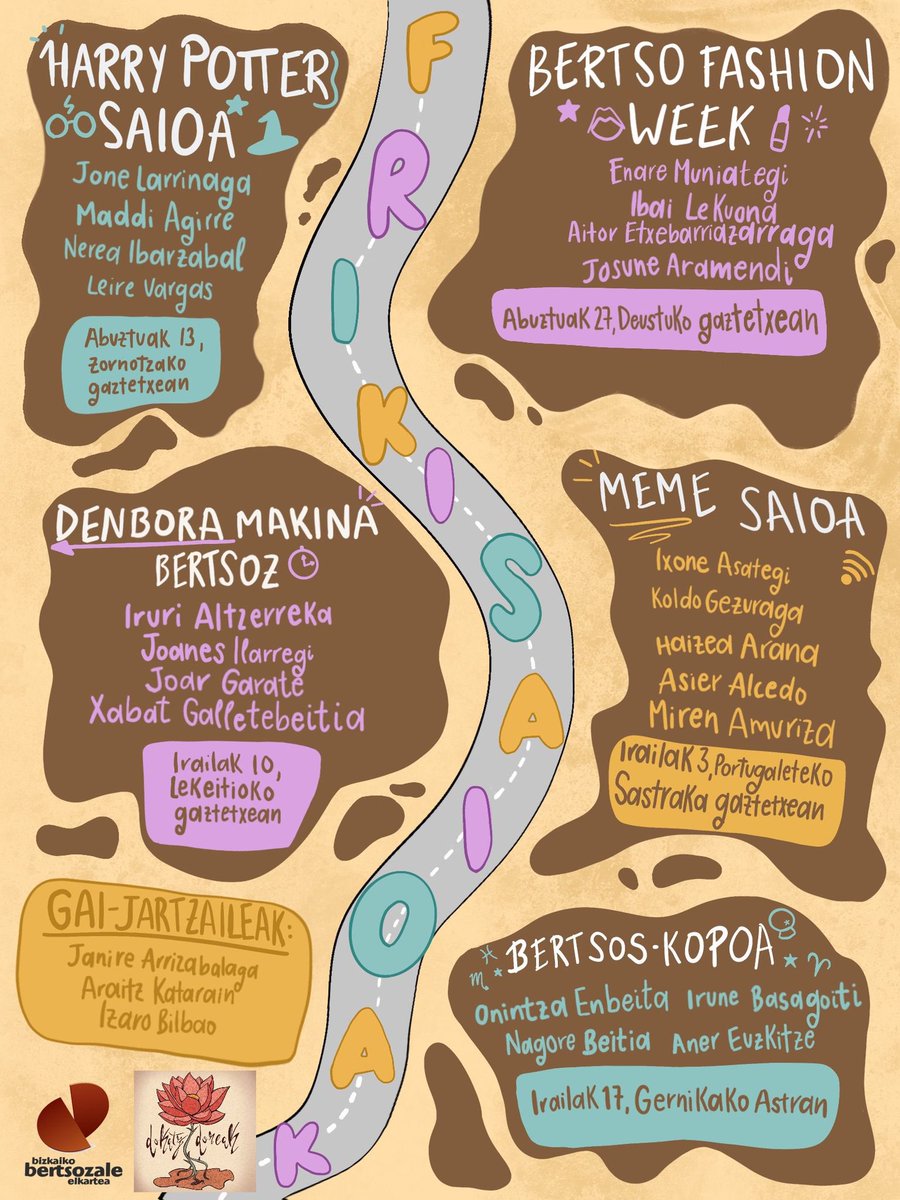 FRIKISAIOAK
HARRY POTTER
SAIOA
Jone Larrinaga
Maddi Agirre
Nerea Ibarzabal
Leire Vargas
Abuztuak 13,
Zornotzako
gaztetxean
BERTSO FASHION
WEEK
Enare Muniategi
Ibai Lekuona
Aitor Etxebarriazarraga
Josune Aramendi
Abuztuak 27, Deustuko gaztetxean
DENBORA MAKINA
BERTSOZ
Iruri Altzerreka
Joanes Ilarregi
Joar Garate
Xabat Galletebeitia
Irailak 10,
Lekeitioko
gaztetxean
MEME SAIOA
Ixone Asategi
Koldo Gezuraga
Haized Arana
Asier Alcedo
Miren Amuriza
Irailak 3, Portugaleteko
Sastraka gaztetxean
GAI-JARTZAILEAK:
Janire Arrizabalaga
Araitz Katarain
Izaro Bilbao
BERTSOS-KOPOA
Onintza Enbeita Irune Basagoiti
Nagore Beitia Aner Euzkitze
Irailak 17, Gernikako Astran
bizkaiko
bertsozale
elkartea